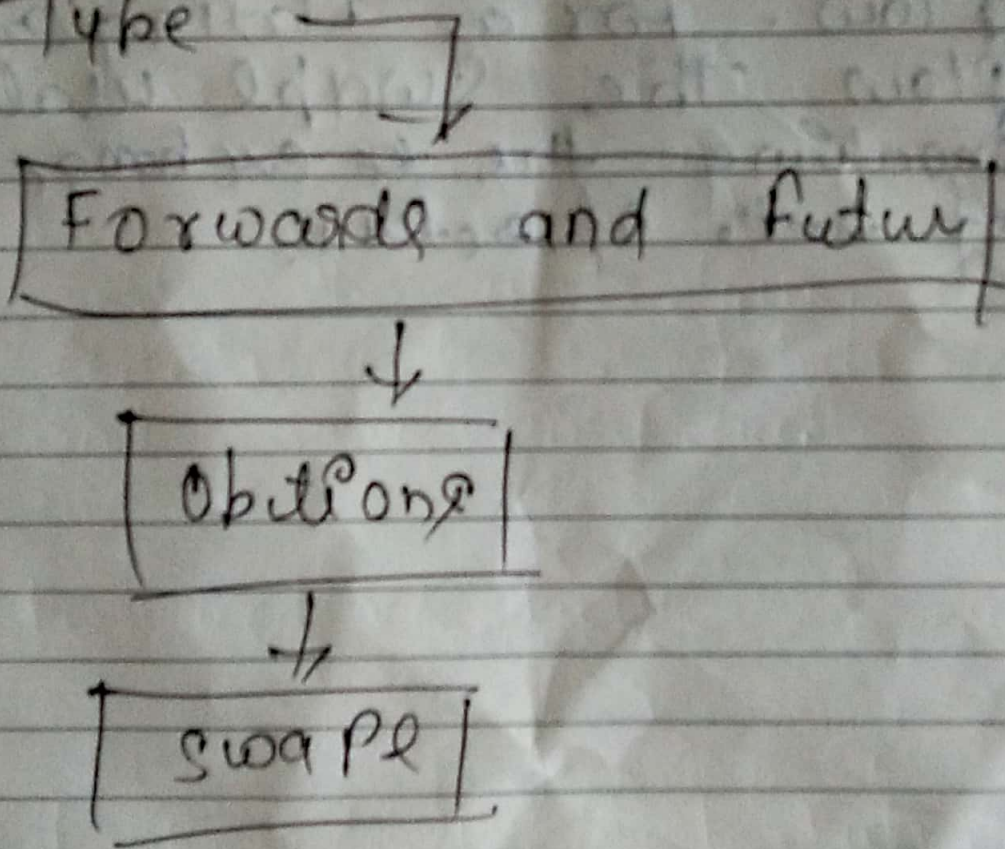 Type
Forwards and Futur
Obtions
Swaps